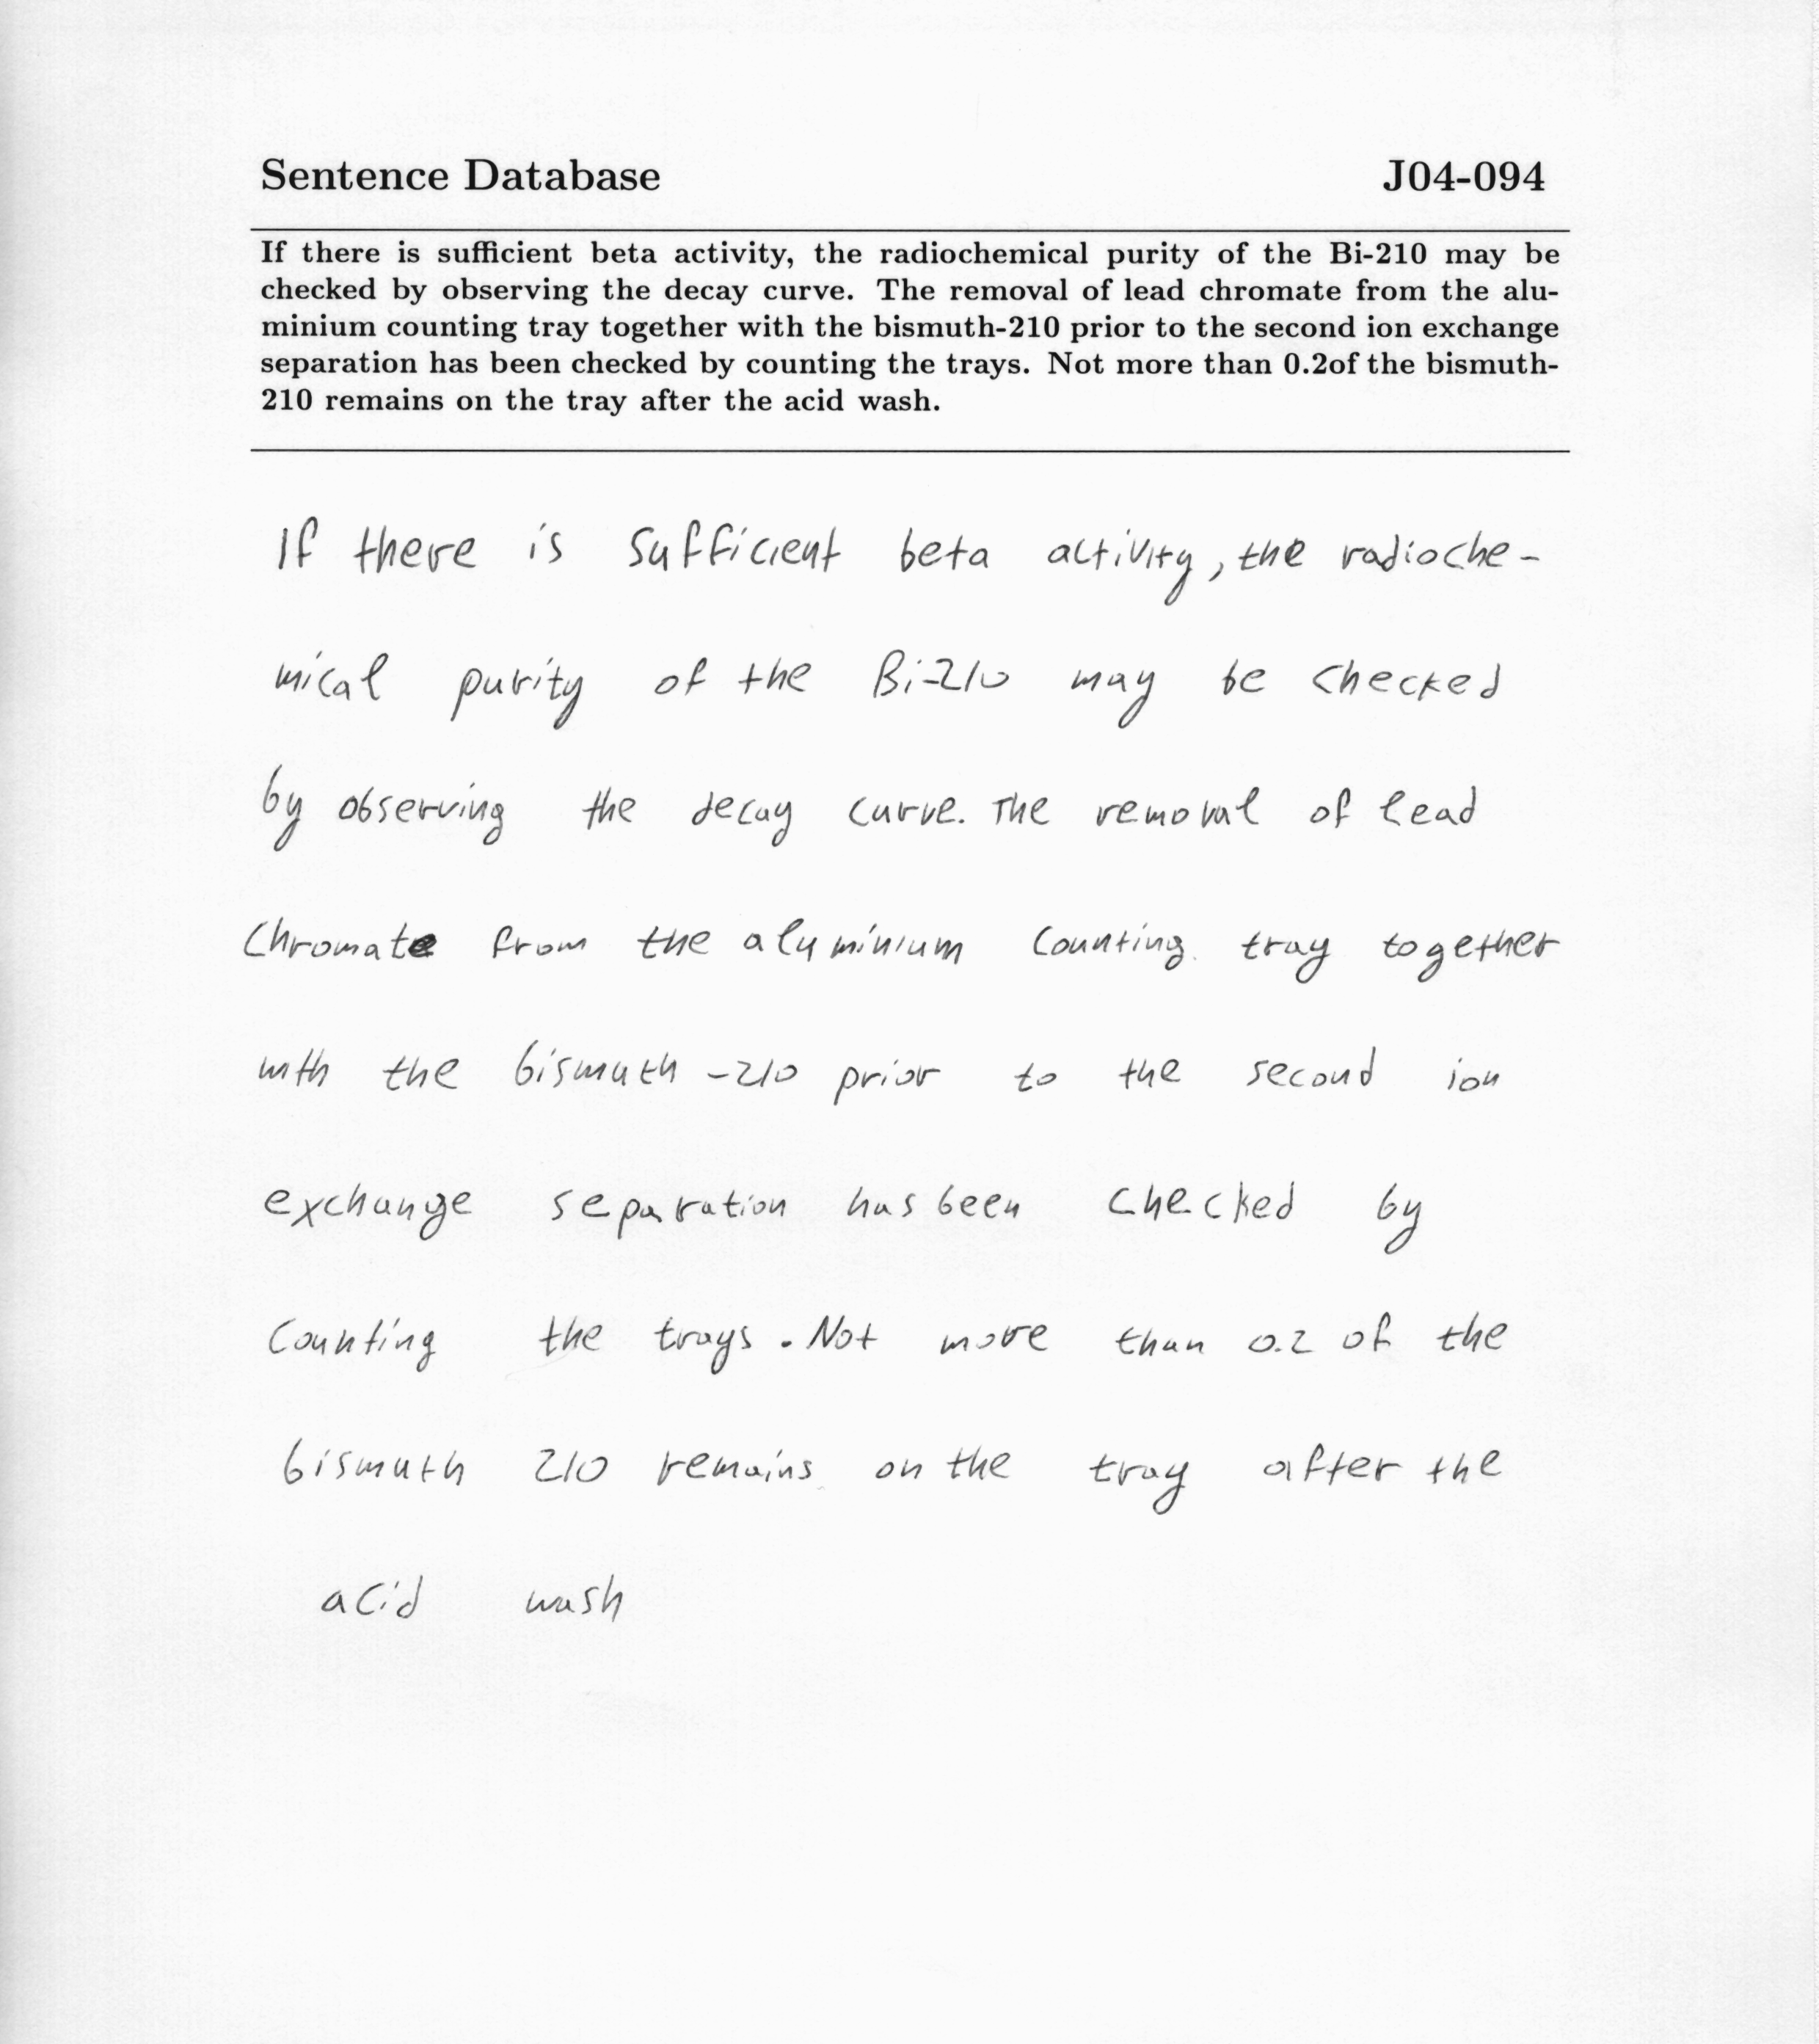 Sentence Database J04-094
If there is sufficient beta activity, the radiochemical purity of the Bi-210 may be
checked by observing the decay curve. The removal of lead chromate from the alu-
minium counting tray together with the bismuth-210 prior to the second ion exchange
separation has been checked by counting the trays. Not more than 0.2of the bismuth-
210 remains on the tray after the acid wash.
If there is sufficient beta activity, the radioche-
mical purity of the Bi-210 may be checked
by observing the decay curve. The removal of lead
chromate from the aluminium counting tray together
with the bismuth -210 prior to the second ion
exchange separation has been checked by
counting the trays. Not more than 0.2 of the
bismuth 210 remains on the tray after the
acid wash